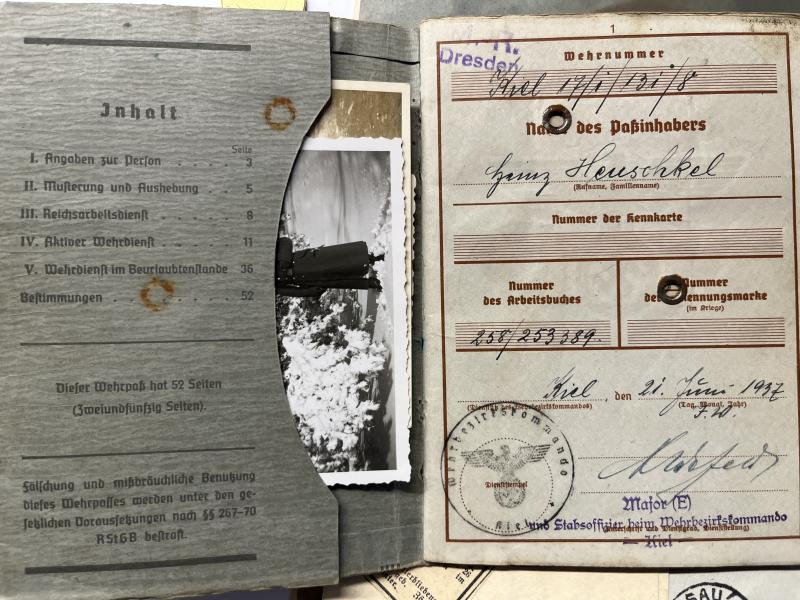 Inhalt
Seite
I. Angaben zur Person . . . . 3
II. Musterung und Aushebung . . 5
III. Reichsarbeitsdienst . . . . 8
IV. Aktiver Wehrdienst . . . . 11
V. Wehrdienst im Beurlaubtenstande 36
Bestimmungen . . . . 52
Dieser Wehrpaß hat 52 Seiten
(Zweiundfünfzig Seiten).
Fälschung und mißbräuchliche Benutzung
dieses Wehrpasses werden unter den ge-
setzlichen Voraussetzungen nach §§ 267-70
RStGB bestraft.
1
Dresden
Wehrnummer
Kiel 17/1/131/8
des Paßinhabers
Heinz Heuschkel
(Rufname, Familienname)
Nummer der Kennkarte
Nummer
des Arbeitsbuches
258/253389.
Nummer
der Erkennungsmarke
(im Kriege)
Kiel, den 21. Juni 1937
(Tag, Monat, Jahr)
Wehrbezirkskommando
Kiel
Dienststempel
Major (E)
und Stabsoffizier beim Wehrbezirkskommando
Kiel